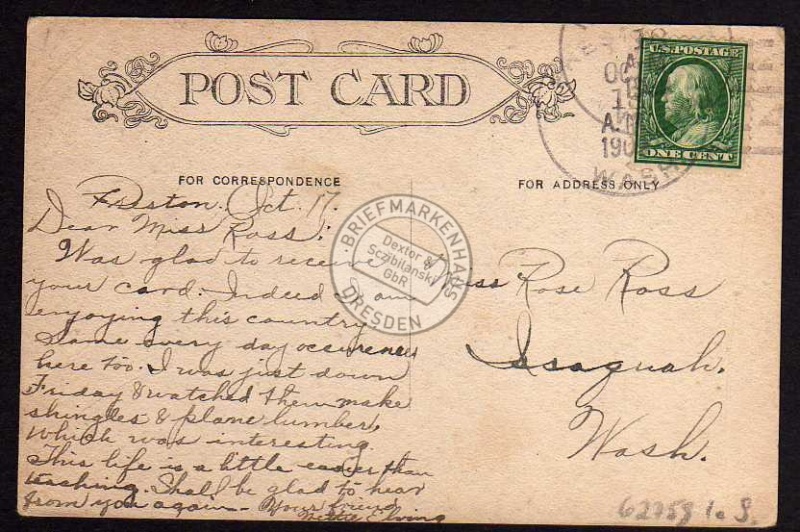 POST CARD
U.S. POSTAGE
ONE CENT
WASH.
FOR CORRESPONDENCE
FOR ADDRESS ONLY
Preston. Oct. 17.
Dear Miss Ross:
Was glad to receive
your card. Indeed I am
enjoying this country
Same every day occurences
here too. I was just down
Friday & watched them make
shingles & plane lumber,
which was interesting.
This life is a little easier than
teaching. Shall be glad to hear
from you again. Your friend
Elving
Miss Rose Ross
Issaquah.
Wash.
BRIEFMARKENHAUS
Dexter &
Sczibilanski
GbR
DRESDEN